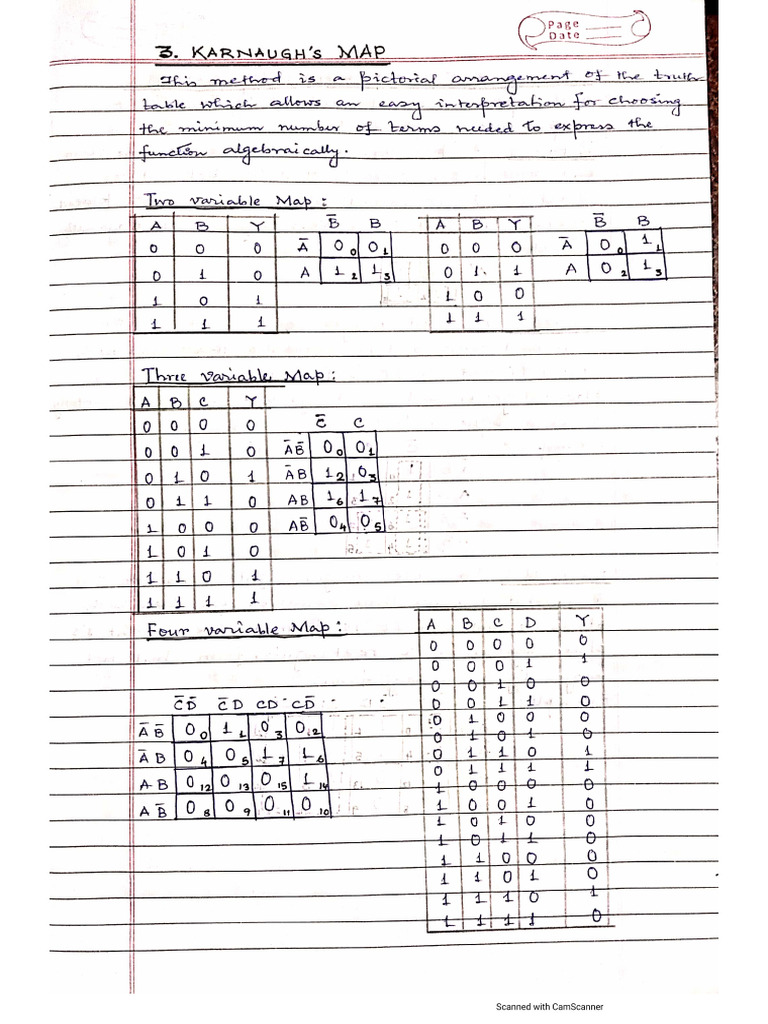 Page
Date
3. KARNAUGH'S MAP
This method is a pictorial arrangement of the truth
table which allows an easy interpretation for choosing
the minimum number of terms needed to express the
function algebraically.
Two variable Map:
A B Y
0 0 0
0 1 0
1 0 1
1 1 1
B̅ B
A̅ 0₀ 0₁
A 1₂ 1₃
A B Y
0 0 0
0 1 1
1 0 0
1 1 1
B̅ B
A̅ 0₀ 1₁
A 0₂ 1₃
Three variable Map:
A B C Y
0 0 0 0
0 0 1 0
0 1 0 1
0 1 1 0
1 0 0 0
1 0 1 0
1 1 0 1
1 1 1 1
C̅ C
A̅B̅ 0₀ 0₁
A̅B 1₂ 0₃
AB 1₆ 1₇
AB̅ 0₄ 0₅
Four variable Map:
C̅D̅ C̅D CD CD̅
A̅B̅ 0₀ 1₁ 0₃ 0₂
A̅B 0₄ 0₅ 1₇ 1₆
AB 0₁₂ 0₁₃ 0₁₅ 1₁₄
AB̅ 0₈ 0₉ 0₁₁ 0₁₀
A B C D Y
0 0 0 0 0
0 0 0 1 1
0 0 1 0 0
0 0 1 1 0
0 1 0 0 0
0 1 0 1 0
0 1 1 0 1
0 1 1 1 1
1 0 0 0 0
1 0 0 1 0
1 0 1 0 0
1 0 1 1 0
1 1 0 0 0
1 1 0 1 0
1 1 1 0 1
1 1 1 1 0
Scanned with CamScanner